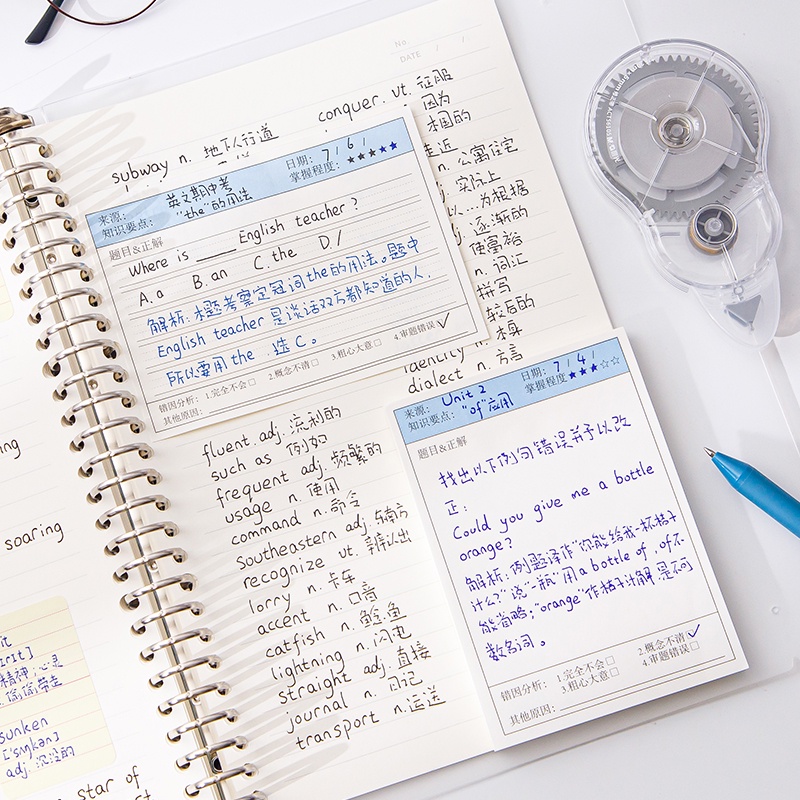 No.
DATE / /
conquer. vt. 征服
subway n. 地下人行道
因为
相因的
走近
n. 公寓住宅
实际上
以...为根据
j. 逐渐的
使富裕
n. 词汇
拼写
较后的
n. 本身
identity
dialect n. 方言
来源: 英文期中考 日期: 7/6/
知识要点: "the"的用法 掌握程度: ★★★★★
题目&正解
Where is ____ English teacher?
A. a B. an C. the D /
解析:本题考察定冠词the的用法。题中
English teacher 是谈话双方都知道的人.
所以要用the .选C。
错因分析: 1.完全不会□ 2.概念不清□ 3.粗心大意□ 4.审题错误☑
其他原因:
fluent. adj. 流利的
such as 例如
frequent adj. 频繁的
usage n. 使用
command n. 命令
Southeastern adj. 东南方
recognize vt. 辨认出
lorry n. 卡车
accent n. 口音
catfish n. 鲶鱼
lightning n. 闪电
straight adj. 直接
journal n. 日记
transport n. 运送
来源: Unit 2 日期: 7/4/
知识要点: "of"应用 掌握程度 ★★★☆☆
题目&正解
找出以下例句错误并予以改
正:
Could you give me a bottle
orange?
解析:例题译作"你能给我一杯桔子
什么?"说"一瓶"用a bottle of , of不
能省略;"orange"作桔子汁解 是不可
数名词。
错因分析: 1.完全不会□ 2.概念不清☑
3.粗心大意□ 4.审题错误□
其他原因:
ing
soaring
精神;心灵
sunken
['sʌŋkən]
adj. 沉没的
star of